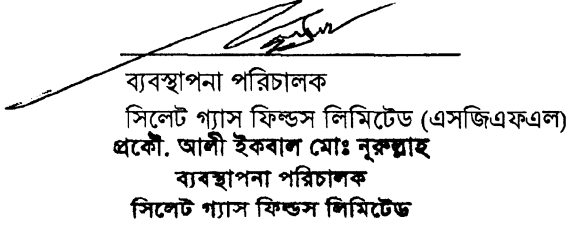 ব্যবস্থাপনা পরিচালক
সিলেট গ্যাস ফিল্ডস লিমিটেড (এসজিএফএল)
প্রকৌ. আলী ইকবাল মোঃ নূরুল্লাহ
ব্যবস্থাপনা পরিচালক
সিলেট গ্যাস ফিল্ডস লিমিটেড